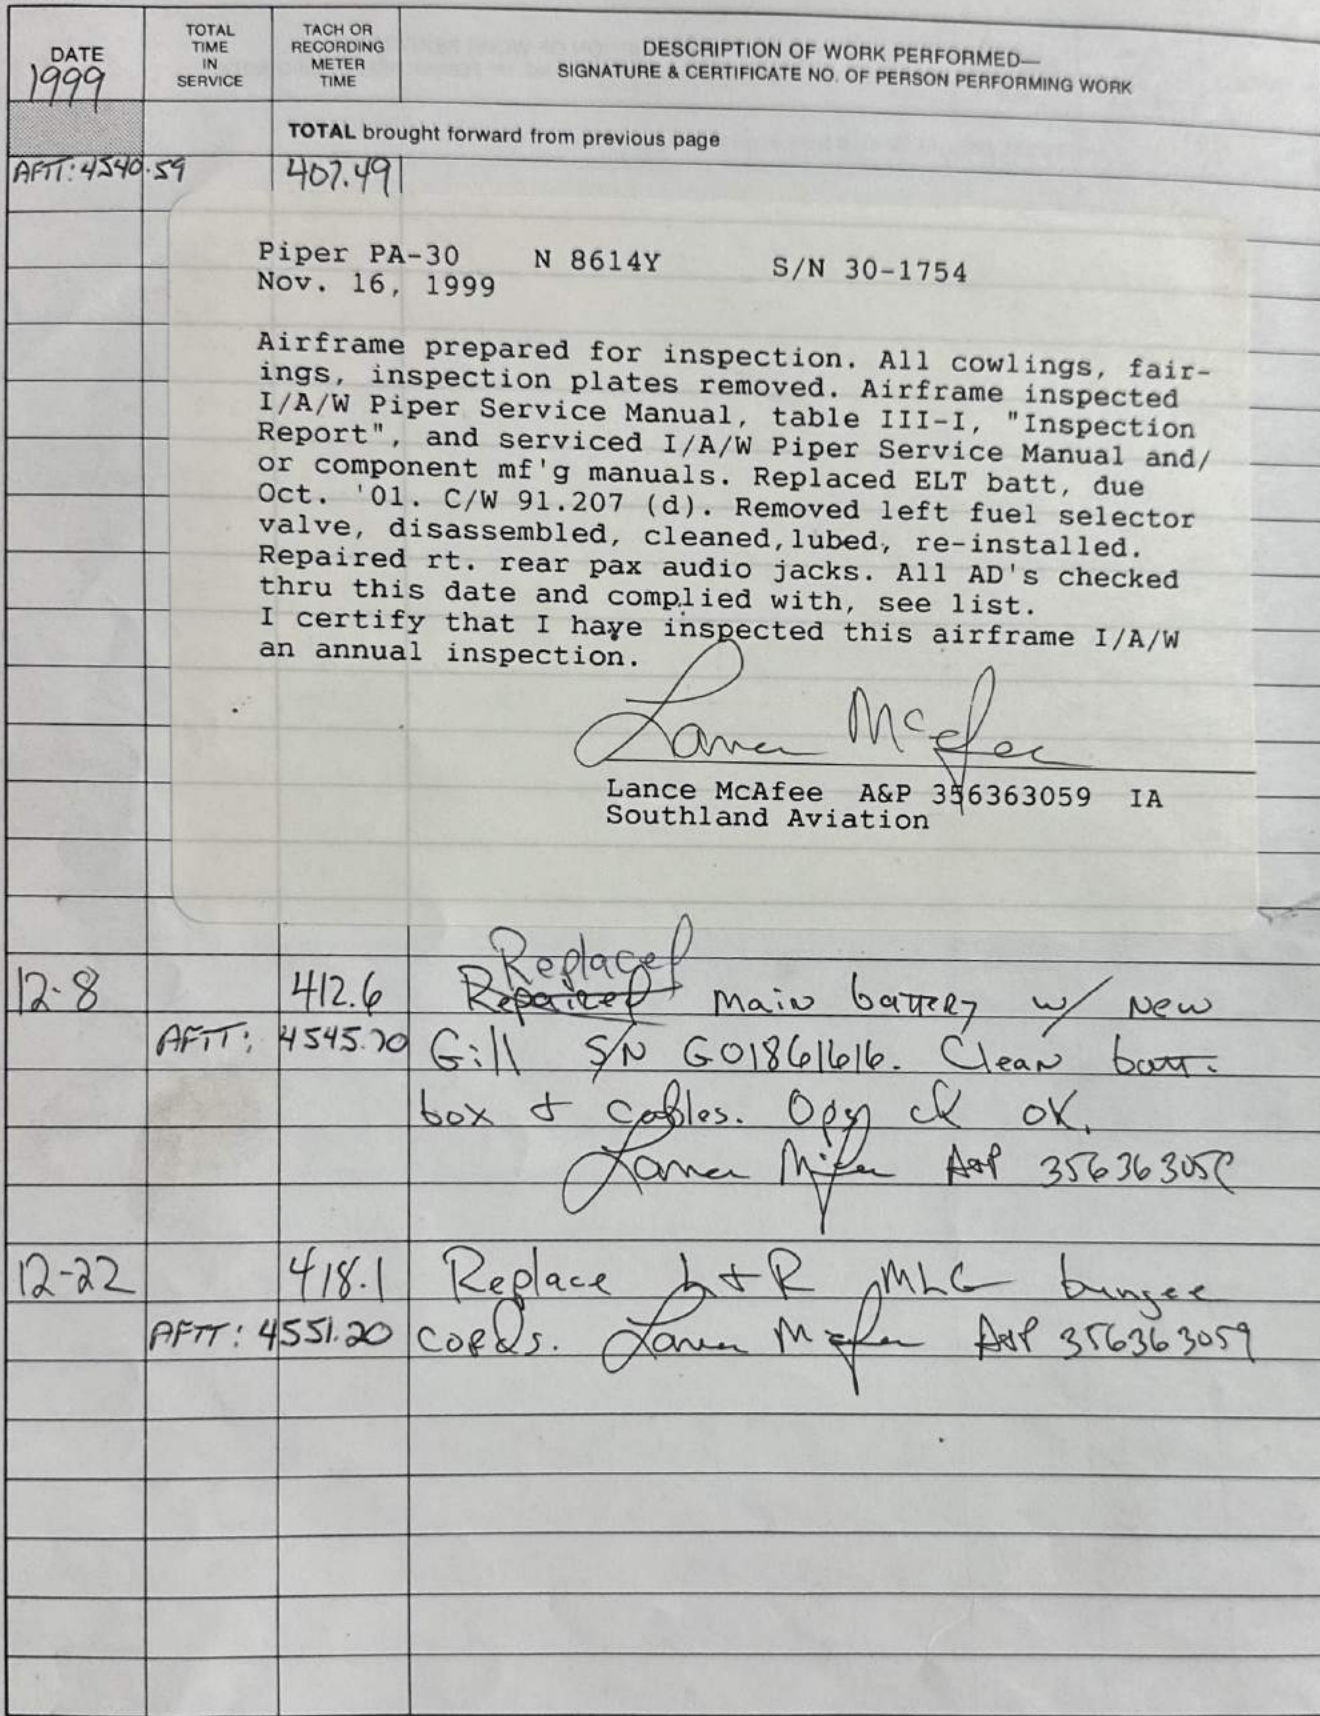 DATE
1999
TOTAL
TIME
IN
SERVICE
TACH OR
RECORDING
METER
TIME
DESCRIPTION OF WORK PERFORMED—
SIGNATURE & CERTIFICATE NO. OF PERSON PERFORMING WORK
TOTAL brought forward from previous page
AFTT: 4540.59 407.49
Piper PA-30 N 8614Y S/N 30-1754
Nov. 16, 1999
Airframe prepared for inspection. All cowlings, fair-
ings, inspection plates removed. Airframe inspected
I/A/W Piper Service Manual, table III-I, "Inspection
Report", and serviced I/A/W Piper Service Manual and/
or component mf'g manuals. Replaced ELT batt, due
Oct. '01. C/W 91.207 (d). Removed left fuel selector
valve, disassembled, cleaned,lubed, re-installed.
Repaired rt. rear pax audio jacks. All AD's checked
thru this date and complied with, see list.
I certify that I have inspected this airframe I/A/W
an annual inspection.
Lance McAfee
Lance McAfee A&P 356363059 IA
Southland Aviation
Replaced
12-8 412.6 Repaired main battery w/ New
AFTT: 4545.70 Gill S/N G01861616. Clean batt.
box & cables. Ops ck ok.
Lance McAfee A&P 356363059
12-22 418.1 Replace L & R MLG bungee
AFTT: 4551.20 cords. Lance McAfee A&P 356363059